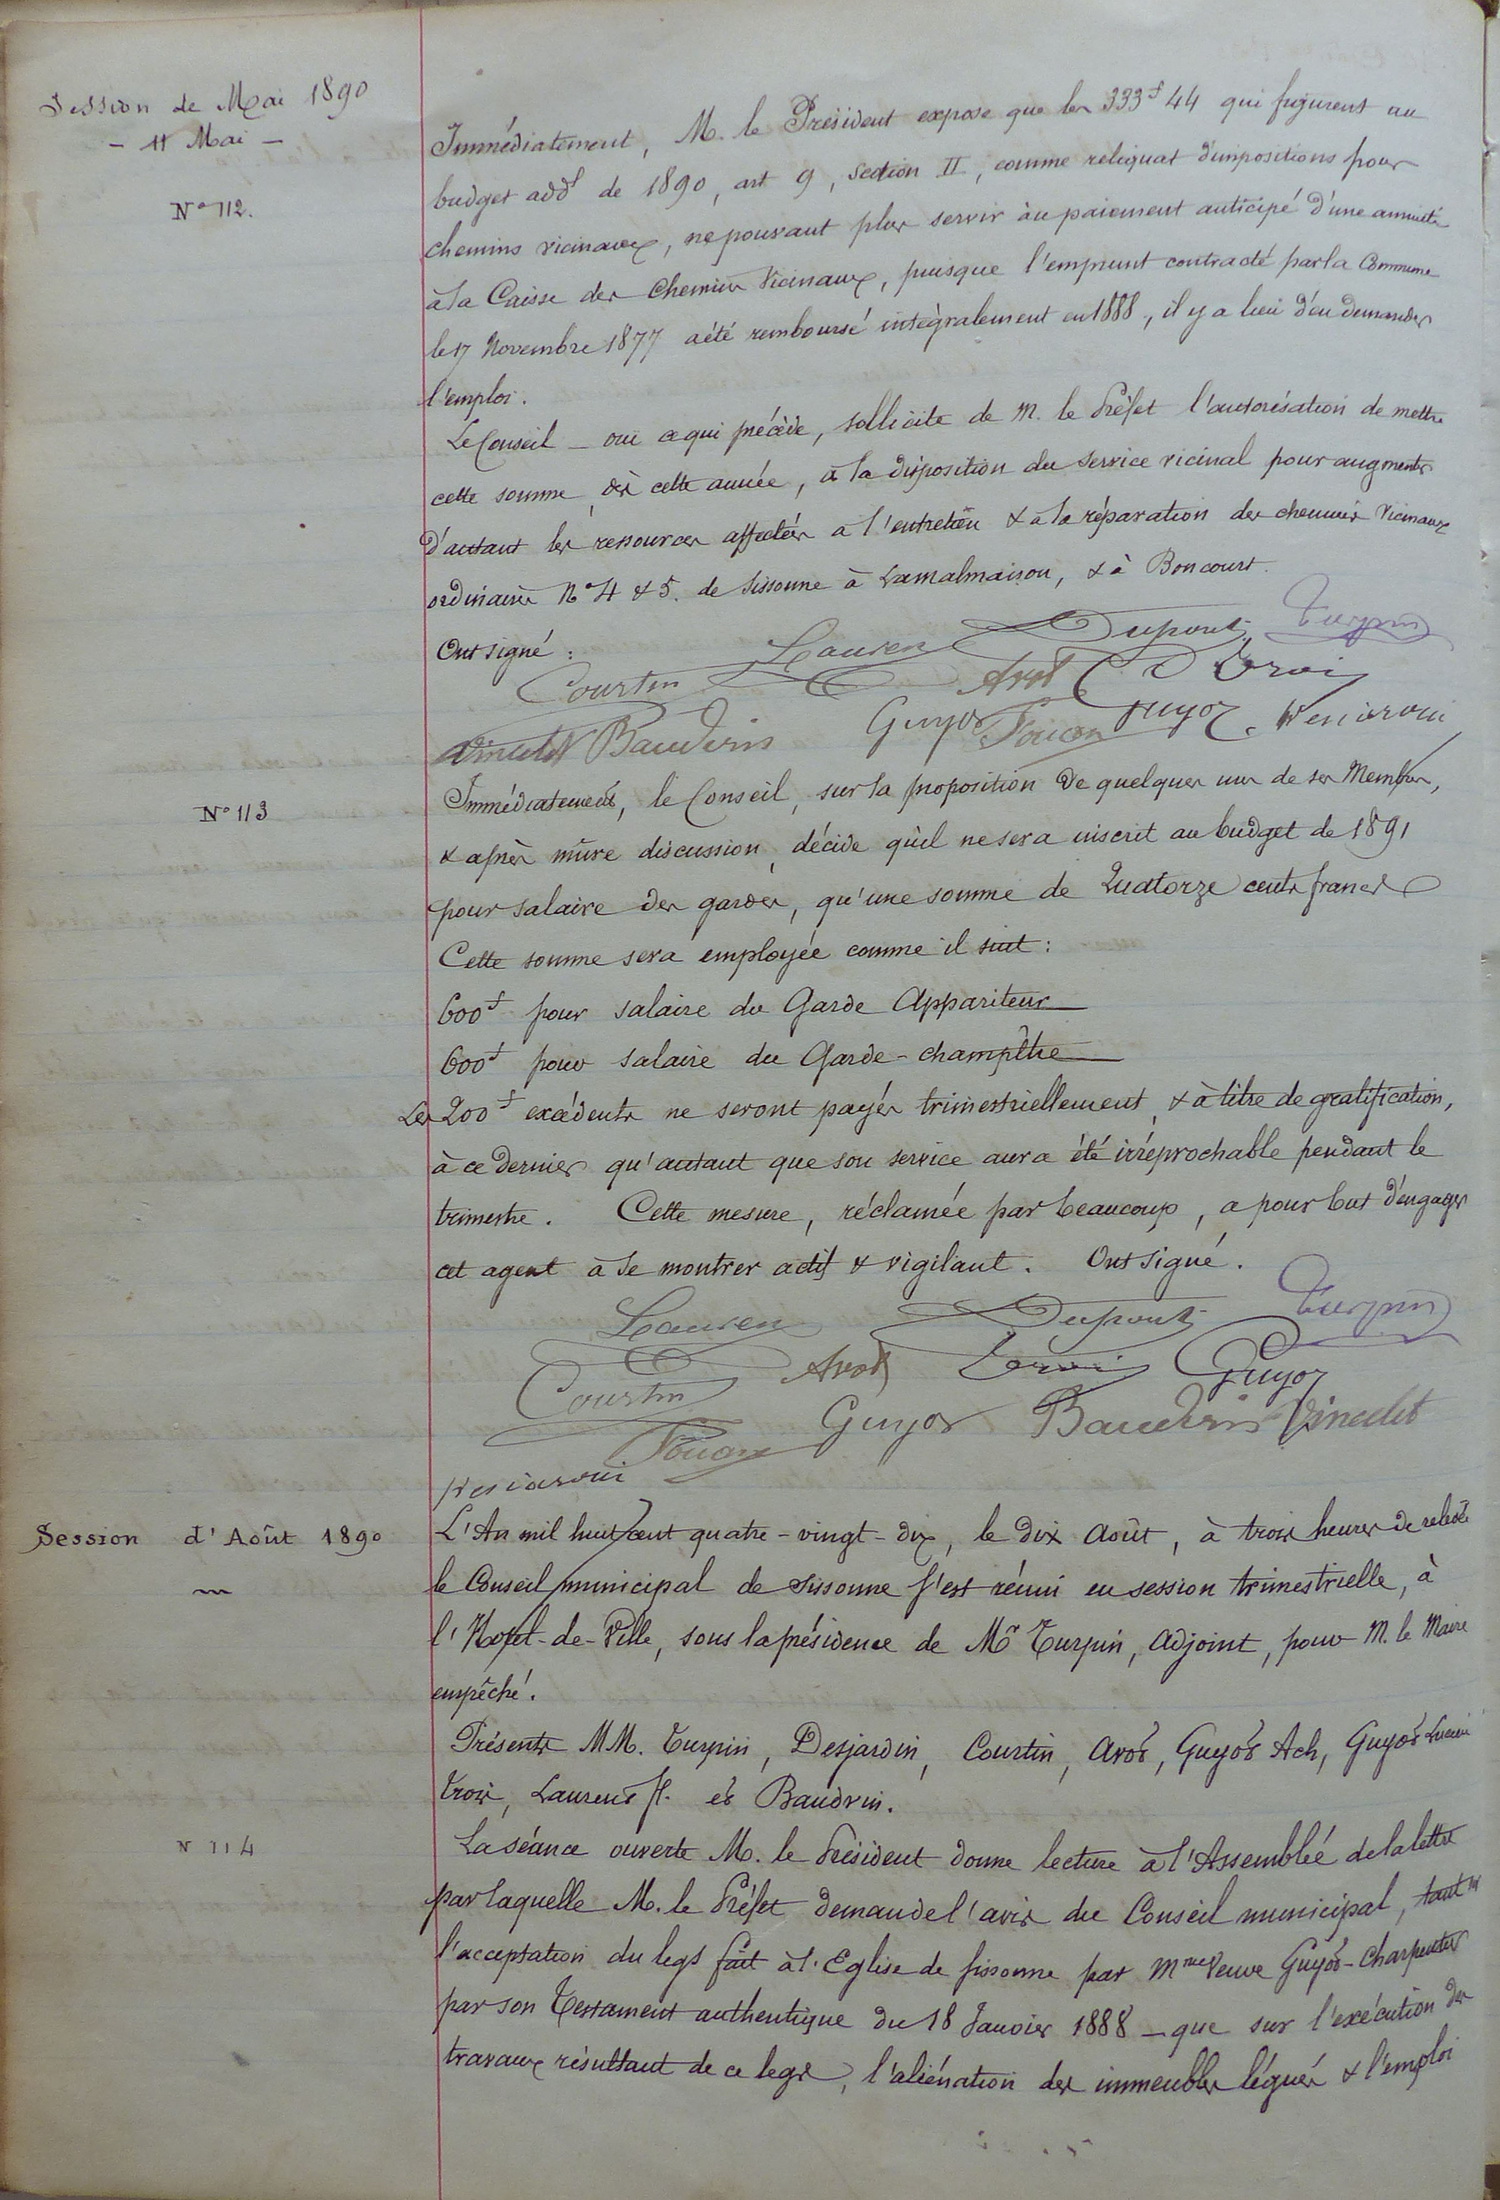 Session de Mai 1890
- 11 Mai -
N° 112.
Immédiatement, M. le Président expose que les 333f 44 qui figurent au
budget addl de 1890, art 9, section II, comme reliquat d'impositions pour
chemins vicinaux, ne pouvant plus servir au paiement anticipé d'une annuité
à la Caisse des Chemins Vicinaux, puisque l'emprunt contracté par la Commune
le 17 Novembre 1877 a été remboursé intégralement en 1888, il y a lieu d'en demander
l'emploi.
Le Conseil - ouï ce qui précède, sollicite de M. le Préfet l'autorisation de mettre
cette somme, dès cette année, à la disposition du service vicinal pour augmenter
d'autant les ressources affectées à l'entretien & à la réparation des chemins vicinaux
ordinaires N° 4 & 5. de Sissonne à Lamalmaison, & à Boncourt.
Ont signé :
Laurent Dupont Turpin
Courtin Avot Vroi
Vinculet Baudvin Guyot Guyot
N° 113
Immédiatement, le Conseil, sur la proposition de quelques uns de ses Membres,
& après mûre discussion, décide qu'il ne sera inscrit au budget de 1891
pour salaire des gardes, qu'une somme de Quatorze cents francs
Cette somme sera employée comme il suit :
600f pour salaire du Garde Appariteur
600f pour salaire du Garde-champêtre
Les 200f excédents ne seront payés trimestriellement, & à titre de gratification,
à ce dernier qu'autant que son service aura été irréprochable pendant le
trimestre. Cette mesure, réclamée par beaucoup, a pour but d'engager
cet agent à se montrer actif & vigilant. Ont signé.
Laurent Dupont Turpin
Courtin Avot Vroi Guyot
Guyot Baudvin Vinculet
Session d'Août 1890
L'An mil huit cent quatre-vingt-dix, le dix Août, à trois heures de relevée
le Conseil municipal de Sissonne s'est réuni en session trimestrielle, à
l'Hôtel-de-Ville, sous la présidence de Mr Turpin, Adjoint, pour M. le Maire
empêché.
Présents MM. Turpin, Desjardin, Courtin, Avot, Guyot Ach, Guyot Lucien
Vroi, Laurent fl. et Baudvin.
N 114
La séance ouverte M. le Président donne lecture à l'Assemblée de la lettre
par laquelle M. le Préfet demande l'avis du Conseil municipal, tant sur
l'acceptation du legs fait à l'Eglise de Sissonne par Mme Veuve Guyot-Charpentier
par son Testament authentique du 18 Janvier 1888 - que sur l'exécution des
travaux résultant de ce legs, l'aliénation des immeubles légués & l'emploi